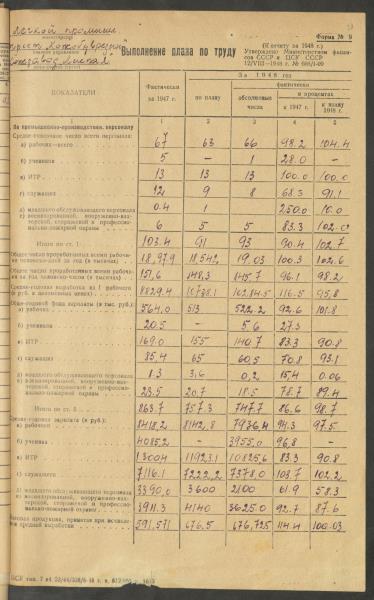 Легкой промышл.
Форма № 9
(К отчету за 1948 г.)
Утверждено Министерством финансов СССР и ЦСУ СССР
12/VIII—1948 г. № 688/1-09
Выполнение плана по труду
ПОКАЗАТЕЛИ
Фактически за 1947 г.
За 1948 год
по плану
фактически
абсолютные числа
в процентах
к 1947 г.
к плану 1948 г.
1 2 3 4 5
По промышленно-производствен. персоналу
Средне-списочное число всего персонала:
а) рабочих—всего 67 63 66 98.2 104.4
б) учеников 5 - 1 28.0 -
в) ИТР 13 13 13 100.0 100.0
г) служащих 12 9 8 68.3 91.1
д) младшего обслуживающего персонала 0.4 1 250.0
е) военизированной, вооруженно-вахтерской, сторожевой и профессионально-пожарной охраны 6 5 5 83.3
Итого по ст. 1 103.4 91 93 90.4 102.7
18,979 18,542 19.03 100.3 102.6
151,6 148,3 145.7 96.1 98.2
8829.4 10738.1 116.5 95,8
Общегодовой фонд зарплаты (в тыс. руб.)
а) рабочих 564.0 513 522,2 92.6 101.8
б) учеников 20.5 - 5.6 27.3
в) ИТР 169.0 155 140.7 83.3 90.8
г) служащих 85,4 65 60,5 70.8 93.1
д) младшего обслуживающего персонала 1.3 3,6 0,2 15,4 0.06
е) военизированной, вооруженно-вахтерской, сторожевой и профессионально-пожарной охраны 23.5 20.7 18.5 78.7 89.4
Итого по ст. 5 863.7 757.3 747.7 86.6 98.7
Средне-годовая зарплата (в руб.)
а) рабочего 8418.2 8142,8 7936.4 94.3 97.5
б) ученика 4085.2 - 3955.0 96,8 -
в) ИТР 13004 11923.1 10825.6 83.3 90,8
г) служащего 7116.1 7222,2 7378.0 103.7 102.2
д) младшего обслуживающего персонала 3390.0 3600 2100 61.9 58.3
е) военизированной, вооруженно-вахтерской, сторожевой и профессионально-пожарной охраны 3911.3 4140 3625.0 92.7 87.6
Валовая продукция, принятая при исчислении средней выработки 591,571 676,5 676,725 114.4 100.03